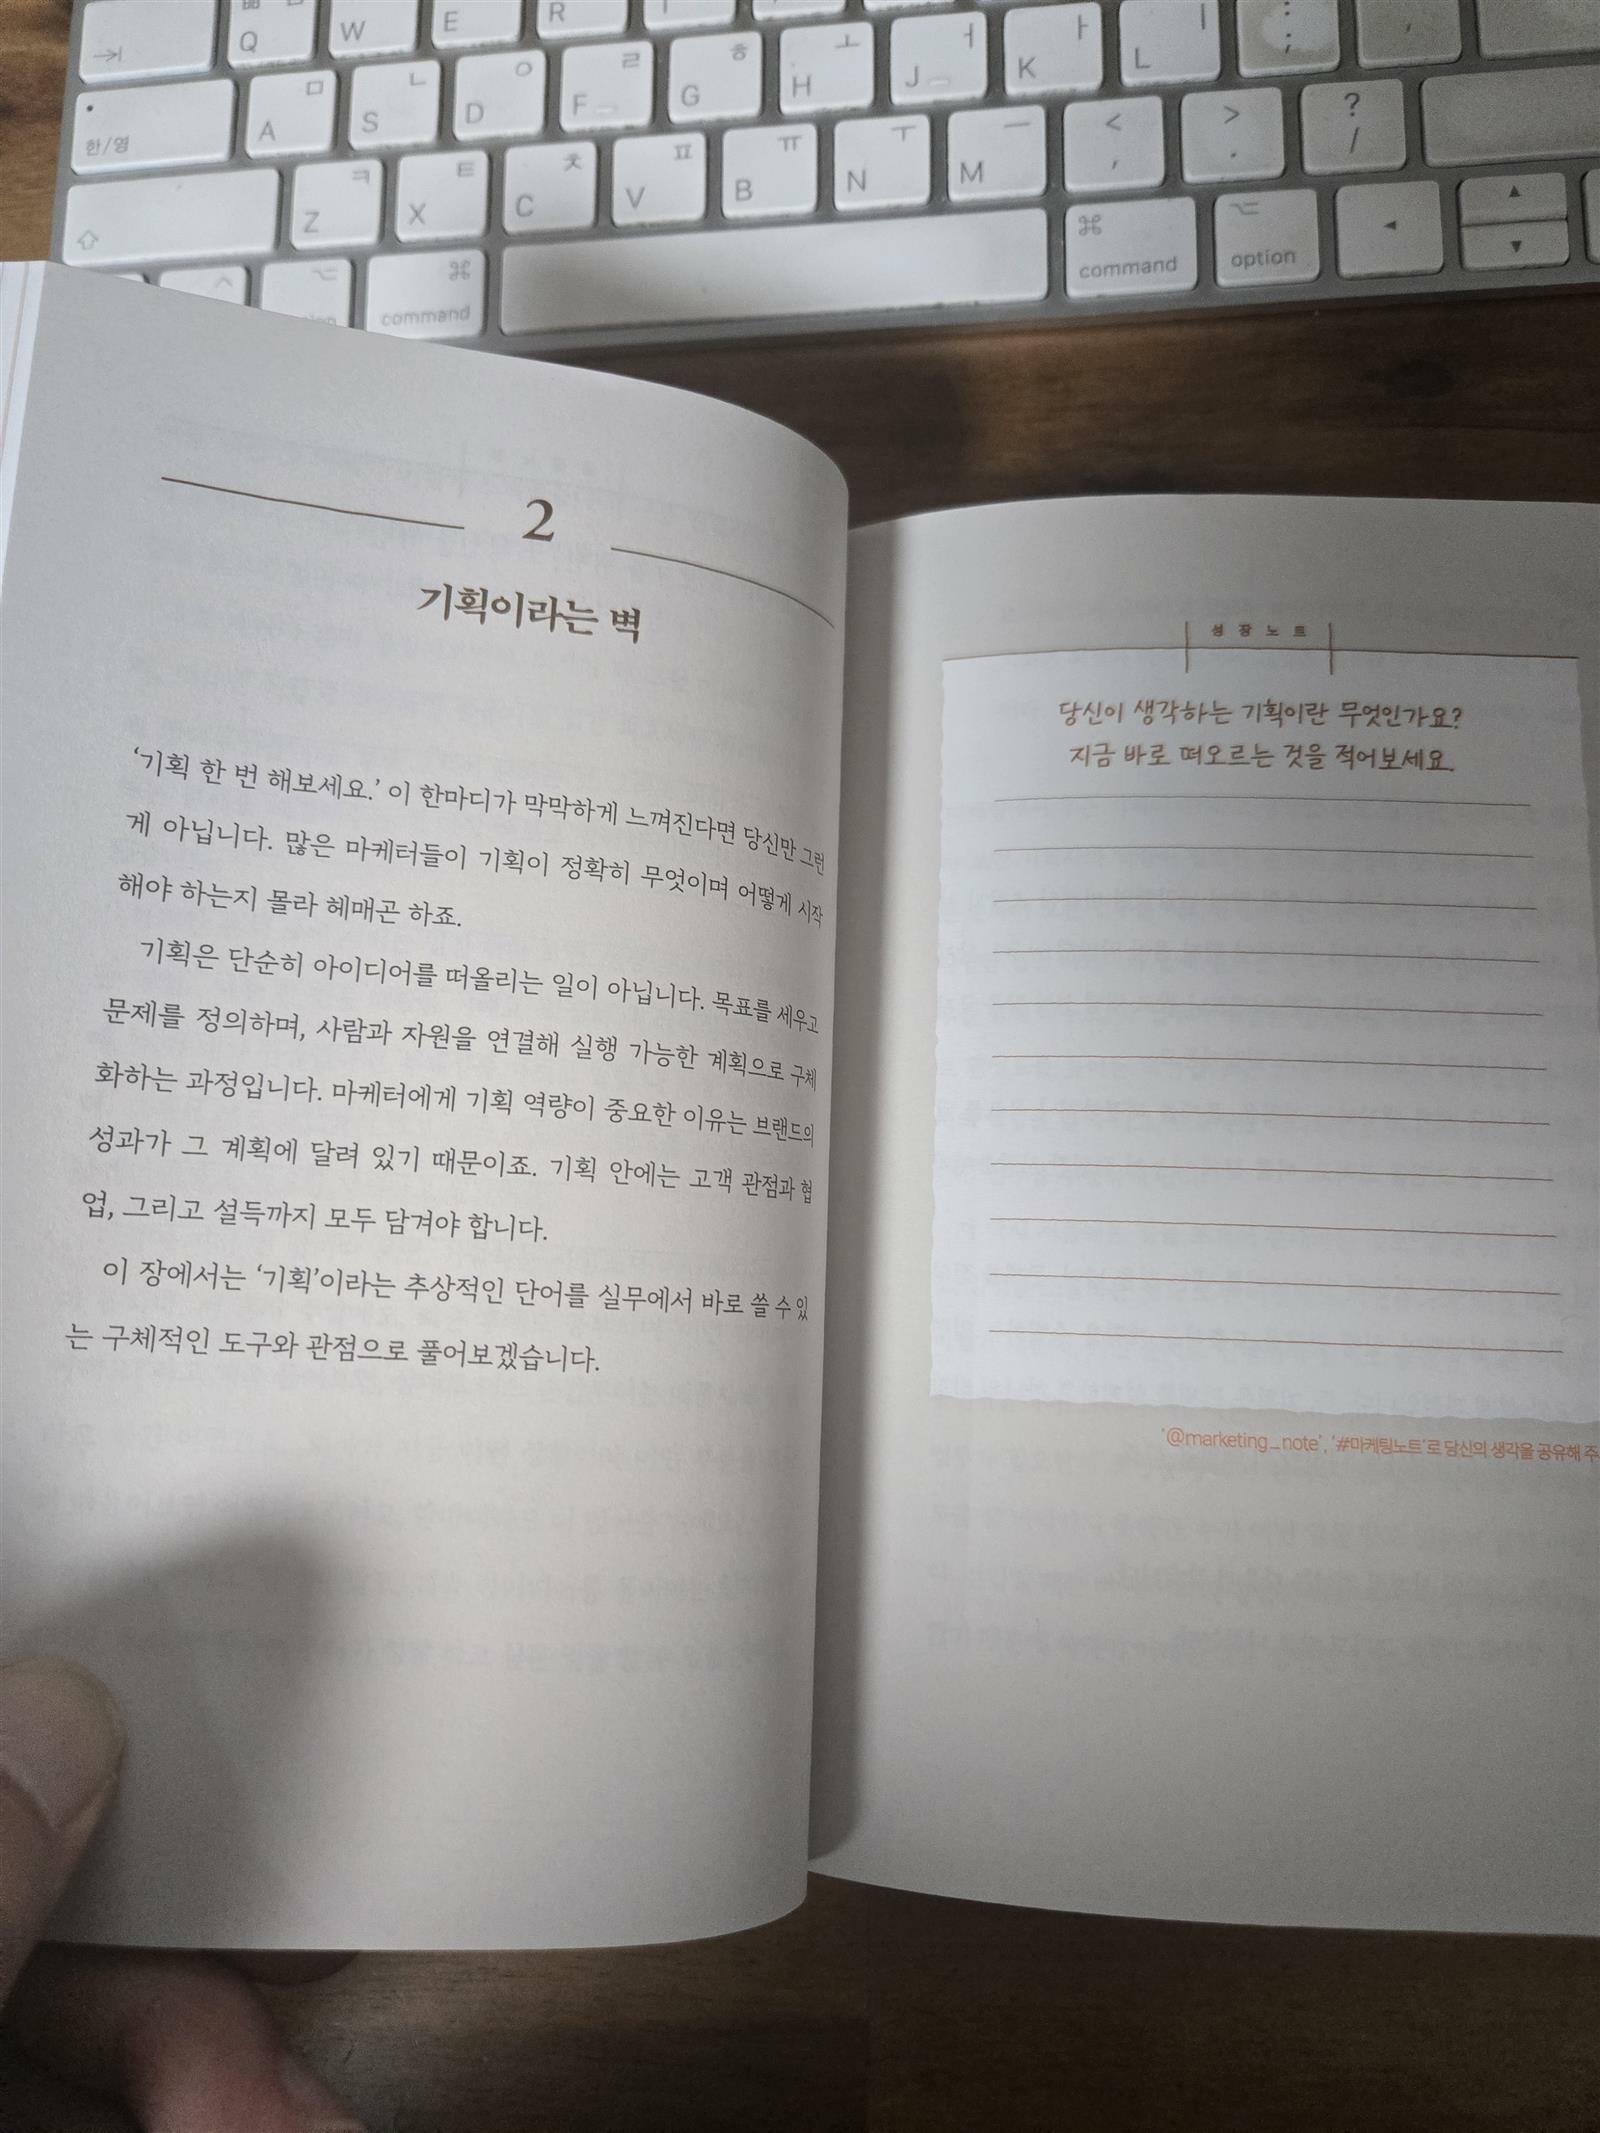 Q
W
E
R
A ㅁ
S ㄴ
D ㅇ
F ㄹ
G ㅎ
H ㅗ
J ㅓ
K ㅏ
L ㅣ
;
한/영
Z ㅋ
X ㅌ
C ㅊ
V ㅍ
B ㅠ
N ㅜ
M ㅡ
< ,
> .
? /
command
command
option
2
기획이라는 벽
‘기획 한 번 해보세요.’ 이 한마디가 막막하게 느껴진다면 당신만 그런
게 아닙니다. 많은 마케터들이 기획이 정확히 무엇이며 어떻게 시작
해야 하는지 몰라 헤매곤 하죠.
기획은 단순히 아이디어를 떠올리는 일이 아닙니다. 목표를 세우고
문제를 정의하며, 사람과 자원을 연결해 실행 가능한 계획으로 구체
화하는 과정입니다. 마케터에게 기획 역량이 중요한 이유는 브랜드의
성과가 그 계획에 달려 있기 때문이죠. 기획 안에는 고객 관점과 협
업, 그리고 설득까지 모두 담겨야 합니다.
이 장에서는 ‘기획’이라는 추상적인 단어를 실무에서 바로 쓸 수 있
는 구체적인 도구와 관점으로 풀어보겠습니다.
성장노트
당신이 생각하는 기획이란 무엇인가요?
지금 바로 떠오르는 것을 적어보세요.
‘@marketing_note’, ‘#마케팅노트’로 당신의 생각을 공유해 주